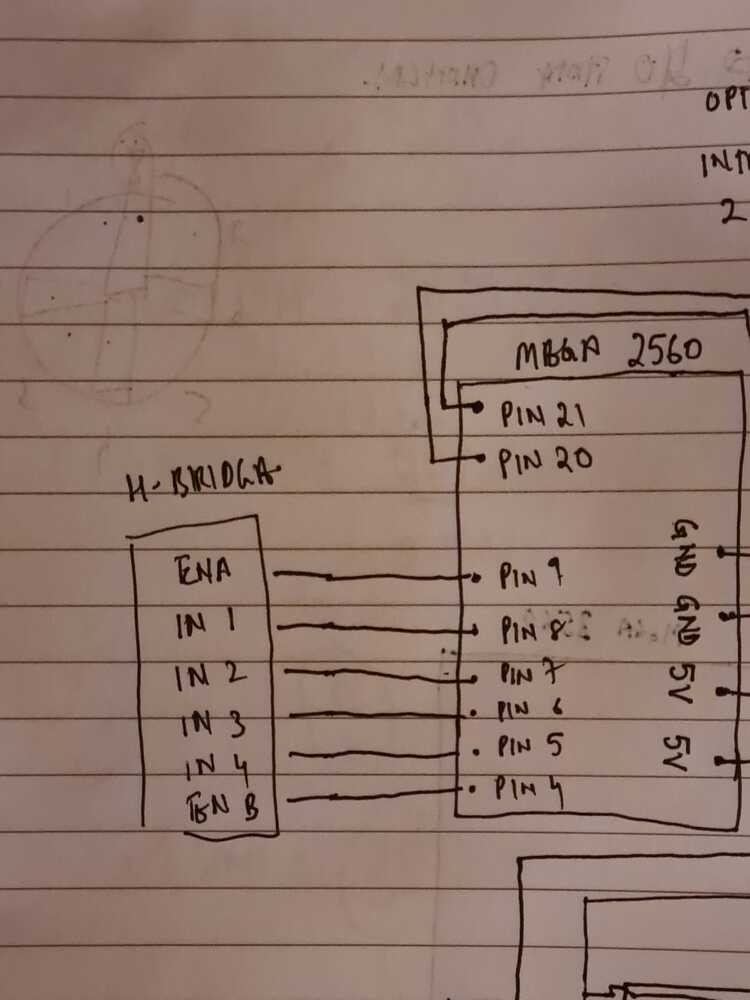 OPT
INT
2
MEGA 2560
PIN 21
PIN 20
H-BRIDGE
ENA
IN 1
IN 2
IN 3
IN 4
EN B
PIN 9
PIN 8
PIN 7
PIN 6
PIN 5
PIN 4
GND
GND
5V
5V